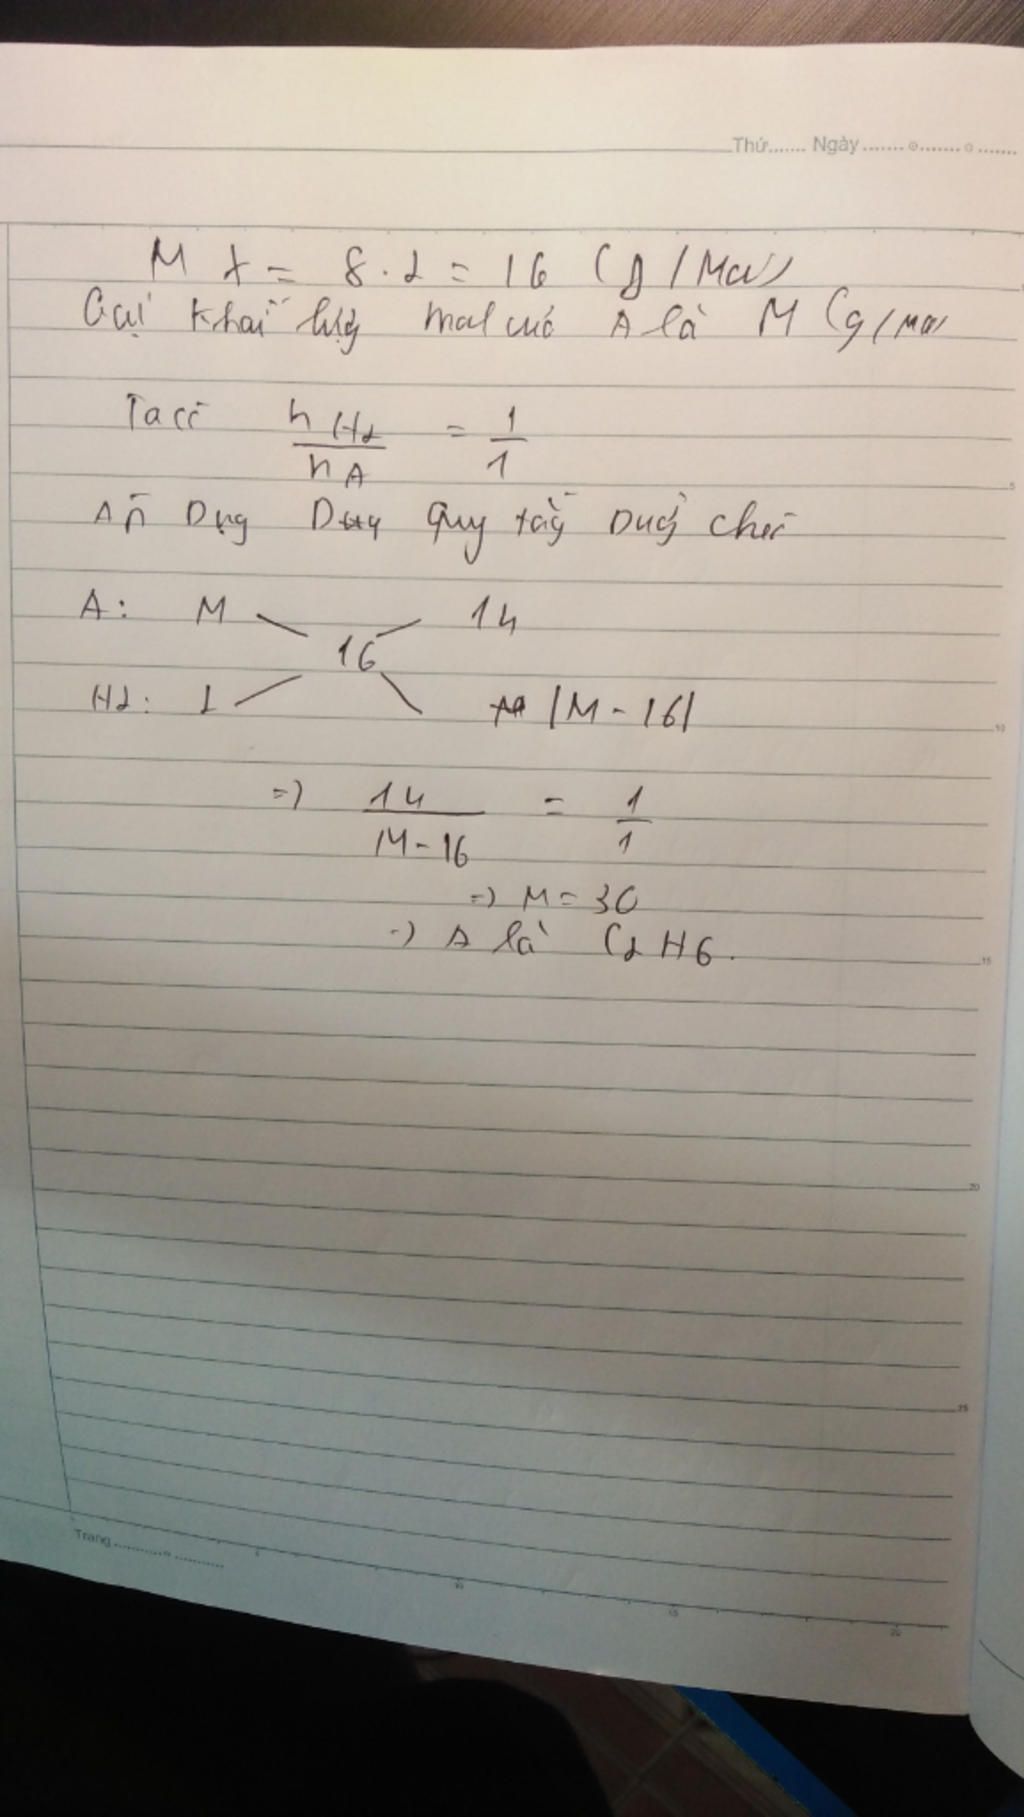 Thứ....... Ngày ....... o ....... o .......
M X = 8.2 = 16 (g/Mol)
Gọi khối lượng mol của A là M (g/Mol
5
Ta có n H2 / n A = 1/1
Áp Dụng Quy tắc Đường chéo
A: M 14
16
H2: 2 |M - 16|
10
=> 14 / M-16 = 1/1
=> M = 30
=> A là C2H6.
15
20
25
Trang .......... o ..........
5
10
15
20